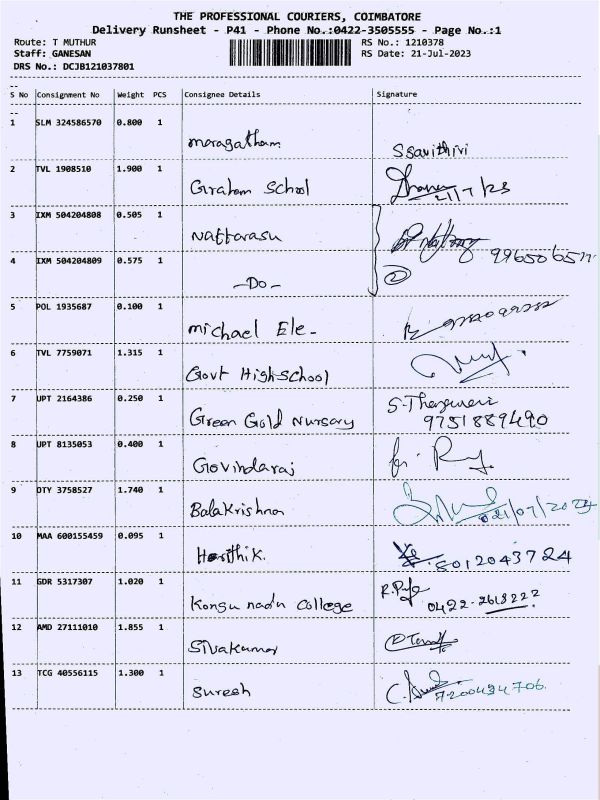 THE PROFESSIONAL COURIERS, COIMBATORE
Delivery Runsheet - P41 - Phone No.:0422-3505555 - Page No.:1
Route: T MUTHUR RS No.: 1210378
Staff: GANESAN RS Date: 21-Jul-2023
DRS No.: DCJB121037801
S No Consignment No Weight PCS Consignee Details Signature
1 SLM 324586570 0.800 1 maragatham S Savithiri
2 TVL 1908510 1.900 1 Graham School 21/7/23
3 IXM 504204808 0.505 1 Nattarasu
4 IXM 504204809 0.575 1 -Do- 2
5 POL 1935687 0.100 1 michael Ele-
6 TVL 7759071 1.315 1 Govt High School
7 UPT 2164386 0.250 1 Green Gold Nursary 9751889490
8 UPT 8135053 0.400 1 Govindaraj for
9 OTY 3758527 1.740 1 Balakrishnan
10 MAA 600155459 0.095 1 Harthik. 8012043724
11 GDR 5317307 1.020 1 Kongu nadu College 0422-2618222
12 AMD 27111010 1.855 1 Sivakumar
13 TCG 40556115 1.300 1 Suresh 7200434706